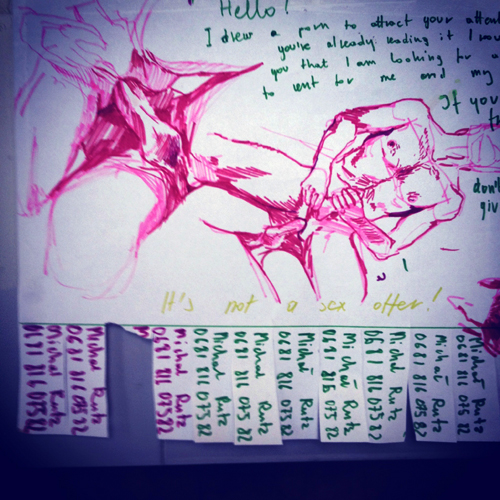 Hello!
I drew a porn to attract your atten
you're already reading it I wou
you that I am looking for a
to rent for me and my
If you
don't
giv
It's not a sex offer!
Michał Rutz
0681 816 075 82
Michał Rutz
0681 816 075 82
Michał Rutz
0681 816 075 82
Michał Rutz
0681 816 075 82
Michał Rutz
0681 816 075 82
Michał Rutz
0681 816 075 82
Michał Rutz
0681 816 075 82
Michał Rutz
0681 816 075 82
Michał Rutz
0681 816 075 82
Michał Rutz
0681 816 075 82